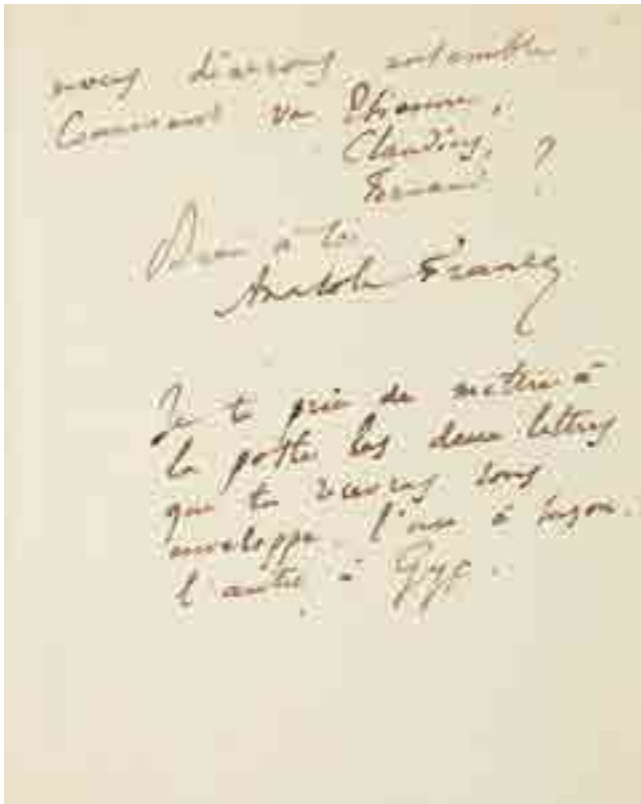 nous dînerons ensemble.
Comment va Etienne,
Claudius,
Fernand ?
Bien à toi
Anatole France
Je te prie de mettre à
la poste les deux lettres
que tu recevras sous
enveloppe. l'une à Suzon.
l'autre à Gyp.